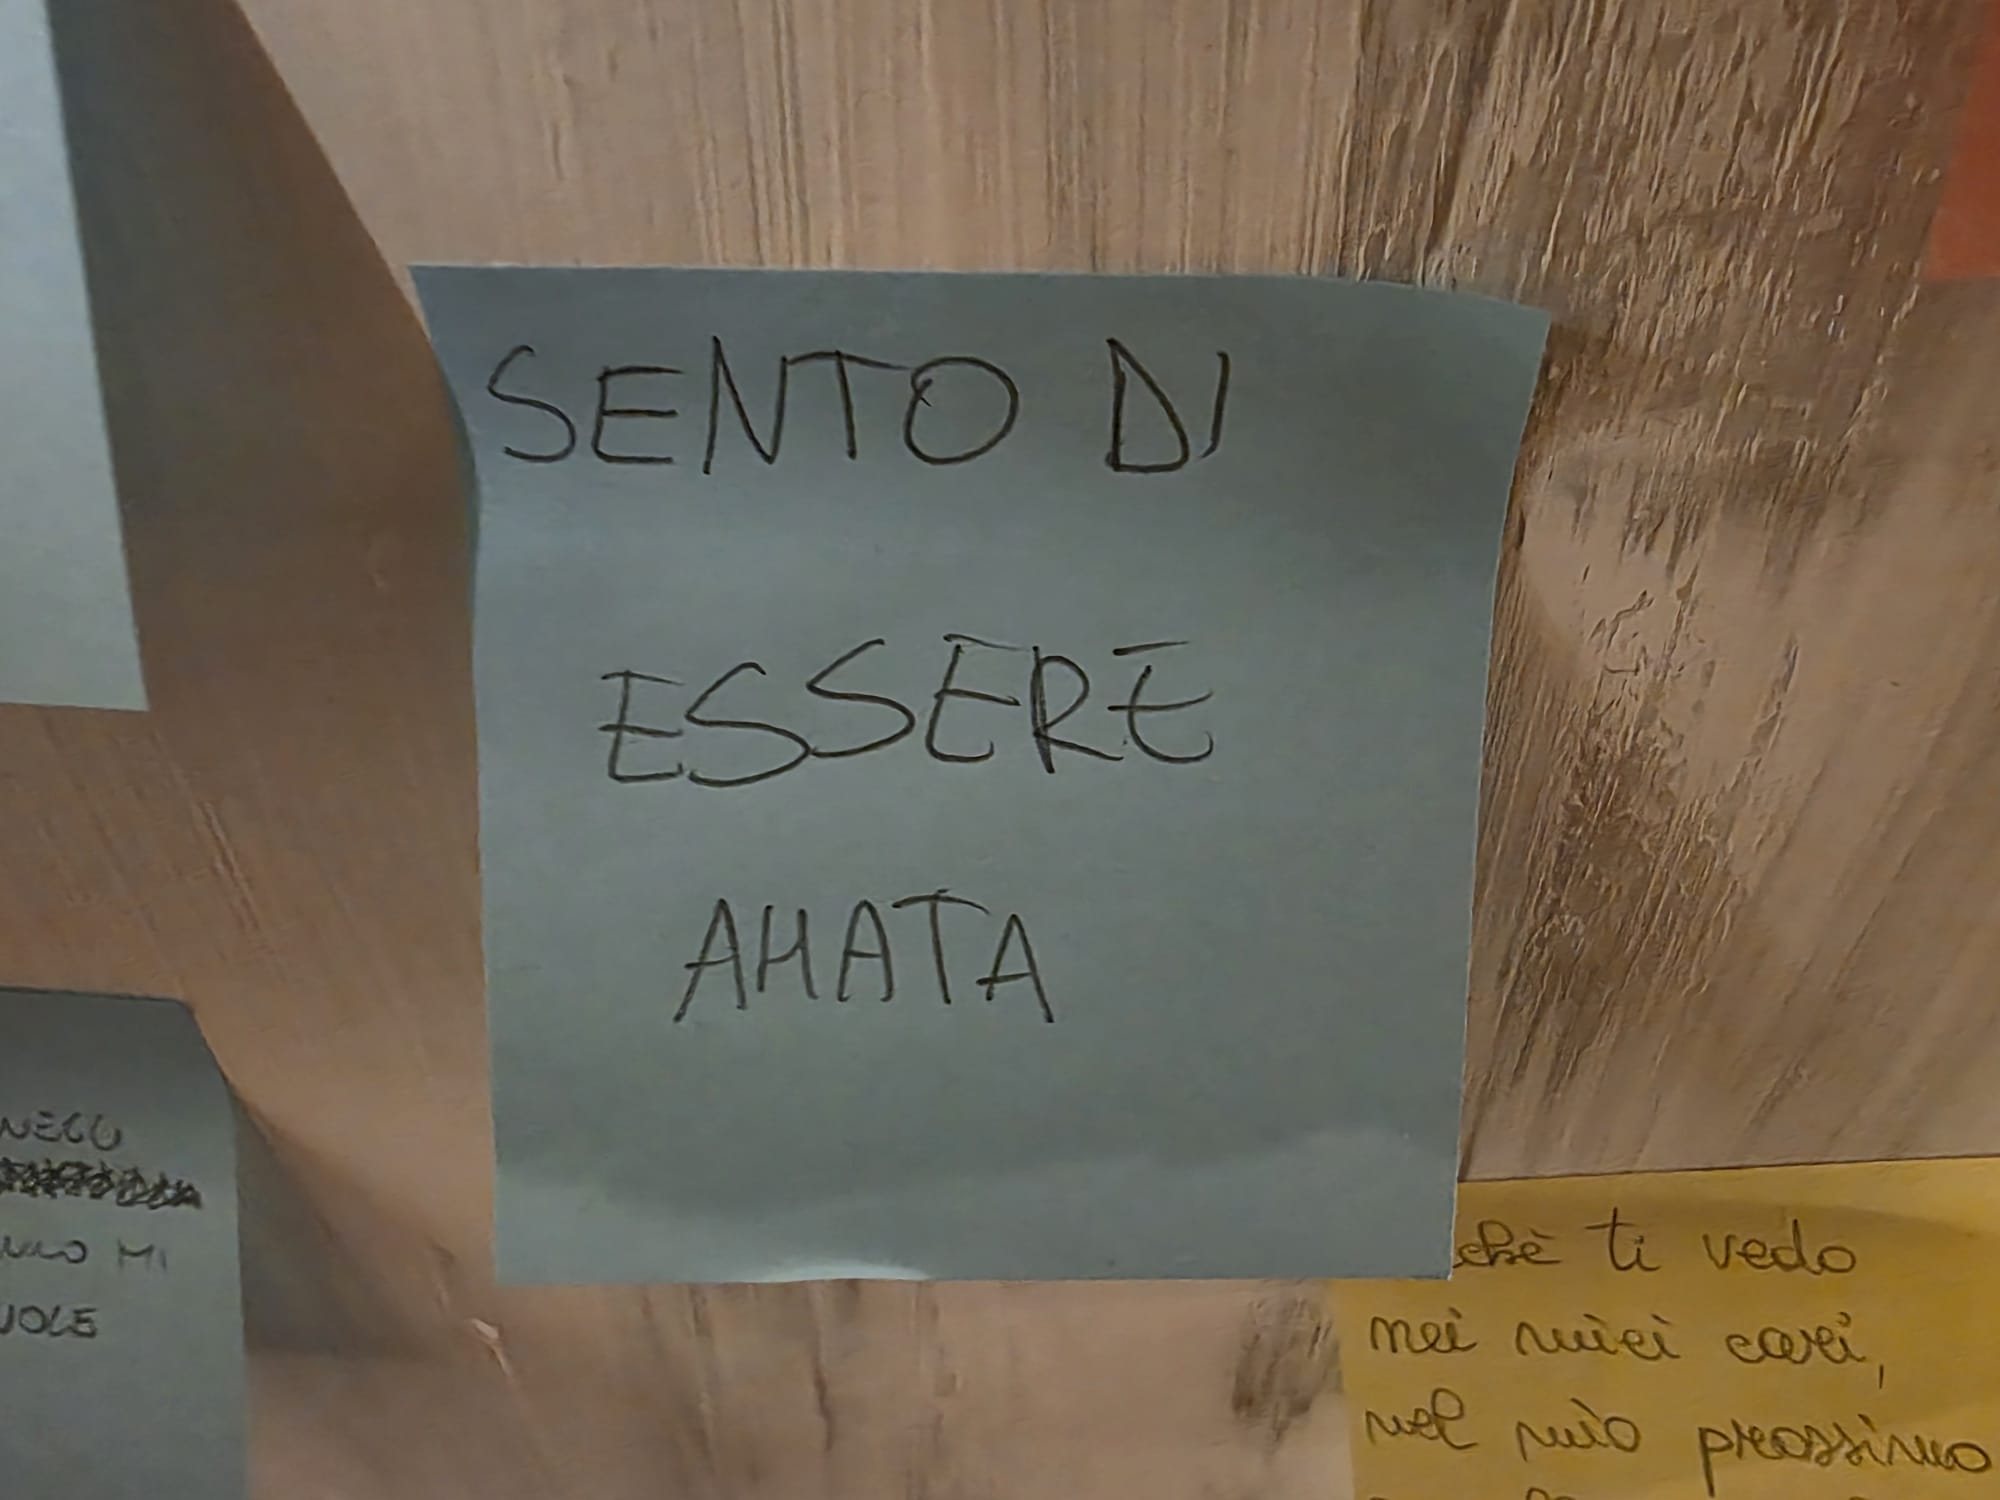 SENTO DI
ESSERE
AMATA
MI
VOLE
chè ti vedo
nei miei cari,
nel mio prossimo